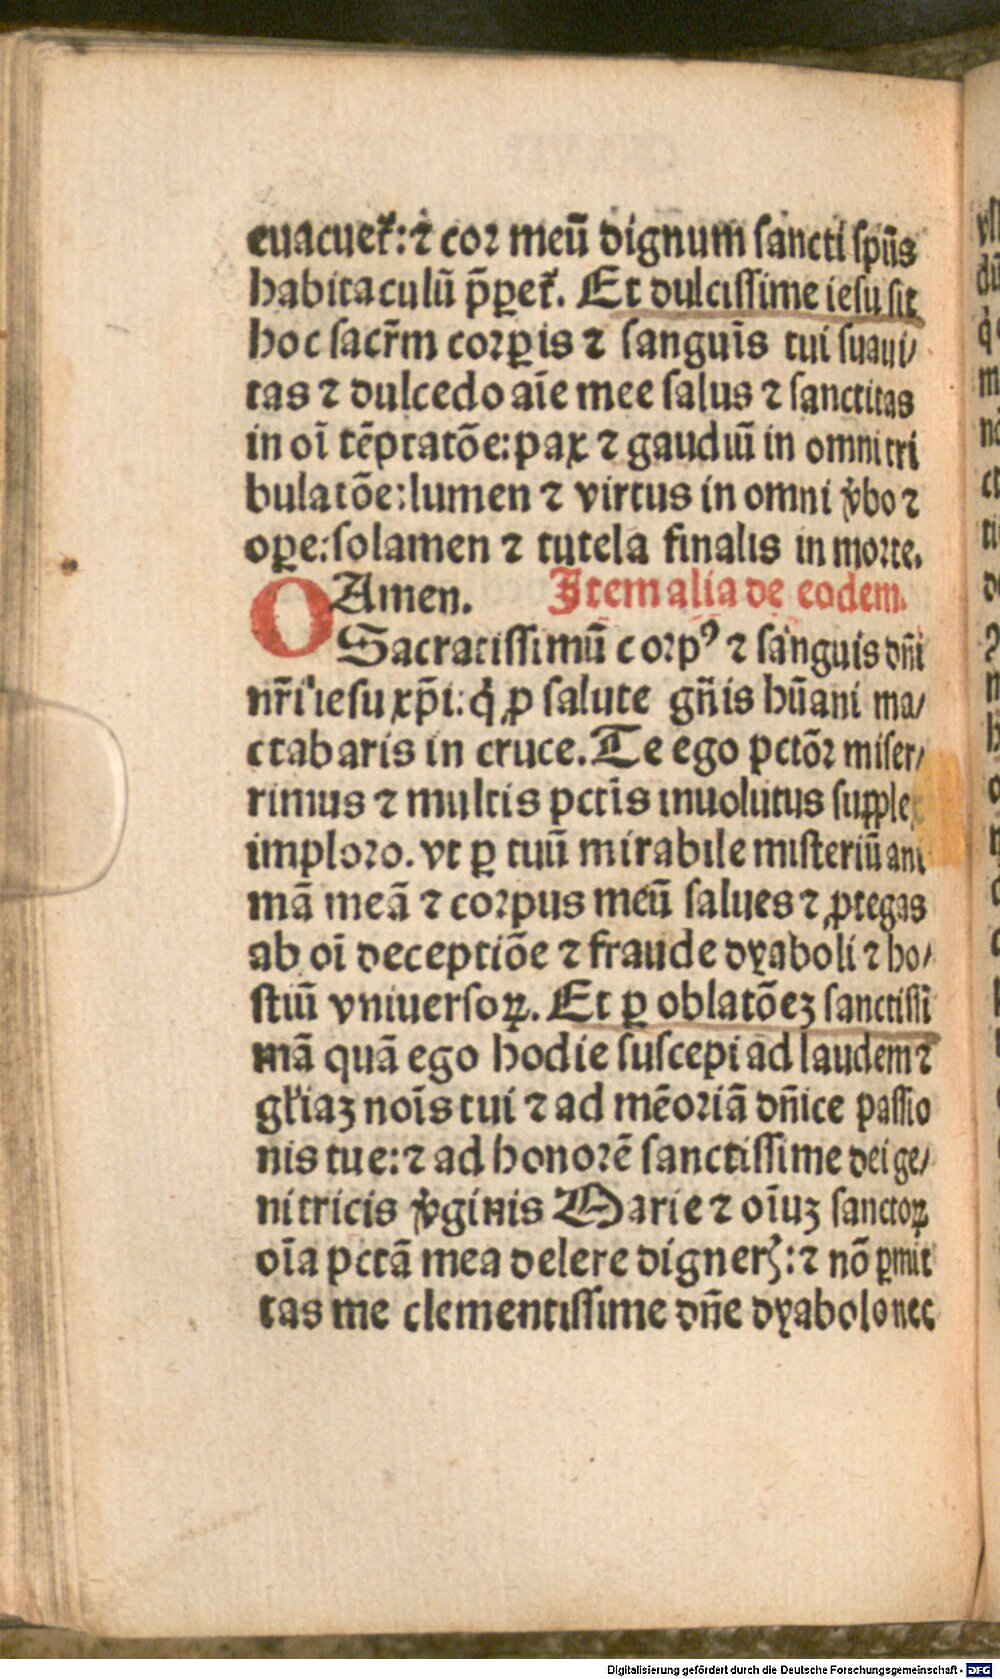 euacuet᷑: ⁊ cor meū dignum sancti spūs
habitaculū p̄ꝑet᷑. Et dulcissime iesu sit
hoc sacr̄m corꝑis ⁊ sanguīs tui suaui/
tas ⁊ dulcedo aīe mee salus ⁊ sanctitas
in oī tēptatōe: pax ⁊ gaudiū in omni tri
bulatōe: lumen ⁊ virtus in omni v̓bo ⁊
oꝑe: solamen ⁊ tutela finalis in morte.
Amen. Item alia de eodem.
O Sacratissimū corpꝰ ⁊ sanguis dn̄i
nr̄i iesu xp̄i: q̇ ꝓ salute gn̄is hūani ma/
ctabaris in cruce. Te ego pctōr miser/
rimus ⁊ multis pctīs inuolutus supplex
imploro. vt ꝑ tuū mirabile misteriū ani
mā meā ⁊ corpus meū salues ⁊ ꝓtegas
ab oī deceptiōe ⁊ fraude dyaboli ⁊ ho/
stiū vniuersoꝝ. Et ꝑ oblatōeꝫ sanctissi
mā quā ego hodie suscepi ad laudem ⁊
gl̄iaꝫ noīs tui ⁊ ad mēoriā dn̄ice passio
nis tue: ⁊ ad honorē sanctissime dei ge/
nitricis v̓ginis Marie ⁊ oīuꝫ sanctoꝝ
oīa pctā mea delere digner̄: ⁊ nō ꝑmit
tas me clementissime dn̄e dyabolo nec
Digitalisierung gefördert durch die Deutsche Forschungsgemeinschaft - DFG